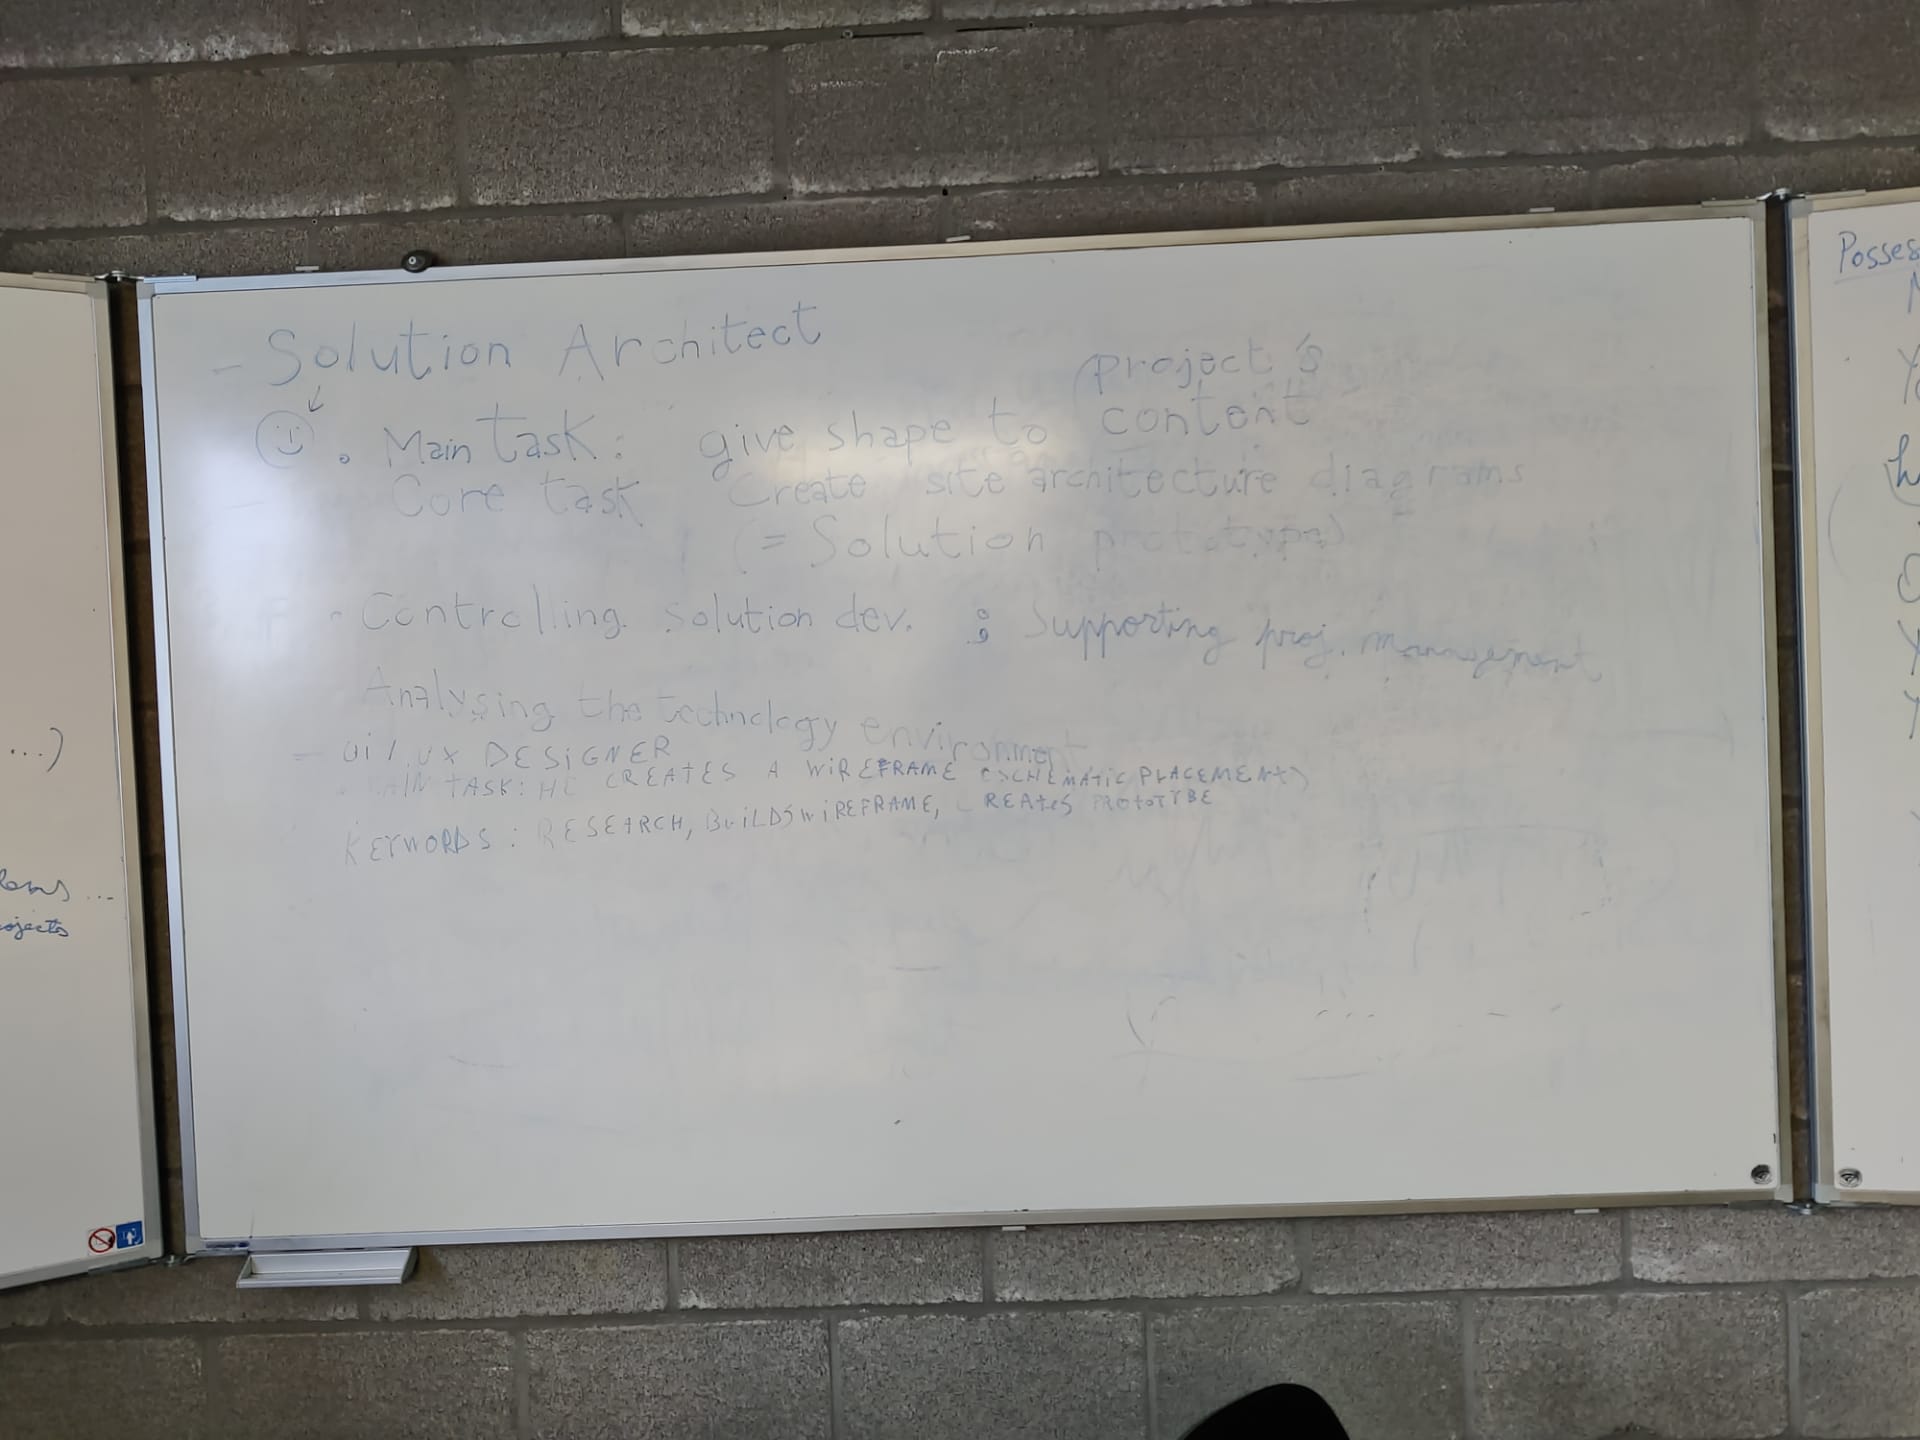 ...)
...
ojects
- Solution Architect
. Main task: give shape to project's content
Core task Create site architecture diagrams
(= Solution prototype)
- Controlling solution dev. ; Supporting proj. management
Analysing the technology environment
- Ui / UX DESiGNER
. MAIN TASK: HE CREATES A WiREFRAME (SCHEMATiC PLACEMENT)
KEYWORDS: RESEARCH, BUiLDS WiREFRAME, CREATES PROTOTYBE
Posses